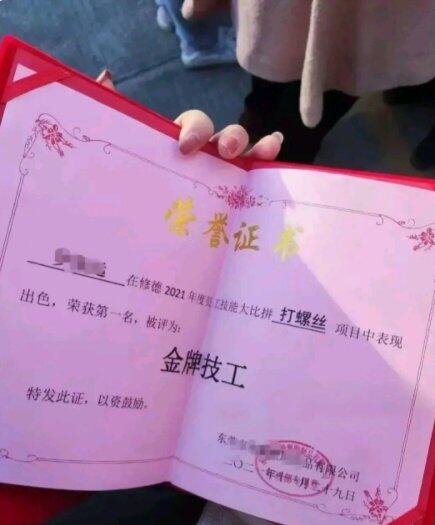 荣誉证书
在修德2021年度员工技能大比拼 打螺丝 项目中表现
出色，荣获第一名，被评为：
金牌技工
特发此证，以资鼓励。
东莞 品有限公司
二〇二 年 月 十九日